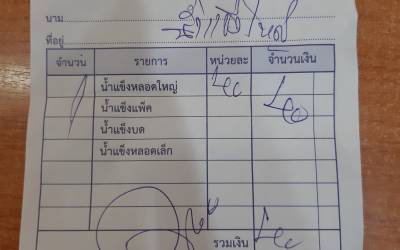 นาม
ที่อยู่
จำนวน รายการ หน่วยละ จำนวนเงิน
1 น้ำแข็งหลอดใหญ่ 40 40
น้ำแข็งแพ็ค
น้ำแข็งบด
น้ำแข็งหลอดเล็ก
รวมเงิน 40